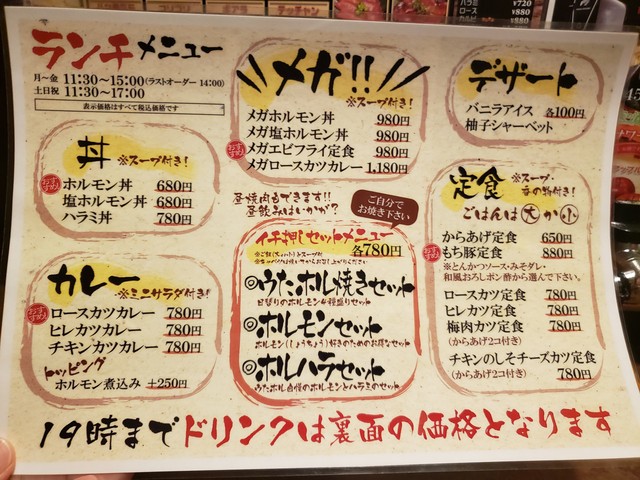 ランチメニュー
月〜金 11:30〜15:00(ラストオーダー 14:00)
土日祝 11:30〜17:00
表示価格はすべて税込価格です
丼 ※スープ付き!
おすすめ
ホルモン丼 680円
塩ホルモン丼 680円
ハラミ丼 780円
カレー
※ミニサラダ付き!
おすすめ
ロースカツカレー 780円
ヒレカツカレー 780円
チキンカツカレー 780円
トッピング
ホルモン煮込み +250円
メガ!!
※スープ付き!
メガホルモン丼 980円
メガ塩ホルモン丼 980円
おすすめ
メガエビフライ定食 980円
メガロースカツカレー 1,180円
昼焼肉もできます!!
昼飲みはいかが?
ご自分で
お焼き下さい
イチ押しセットメニュー
各780円
◎うたホル焼きセット
日替りのホルモン4種盛りセット
◎ホルモンセット
ホルモン(しょうちょう)好きのためのお得なセット
◎ホルハラセット
うたホル自慢のホルモンとハラミのセット
デザート
バニラアイス 各100円
柚子シャーベット
定食 ※スープ・
香の物付き!
ごはんは大か小
からあげ定食 650円
おすすめ
もち豚定食 880円
※とんかつソース・みそダレ・
和風おろしポン酢から選んで下さい。
ロースカツ定食 780円
ヒレカツ定食 780円
梅肉カツ定食 780円
(からあげ2コ付き)
チキンのしそチーズカツ定食
(からあげ2コ付き) 780円
19時までドリンクは裏面の価格となります
¥720
ロース ¥880
カルビ ¥880